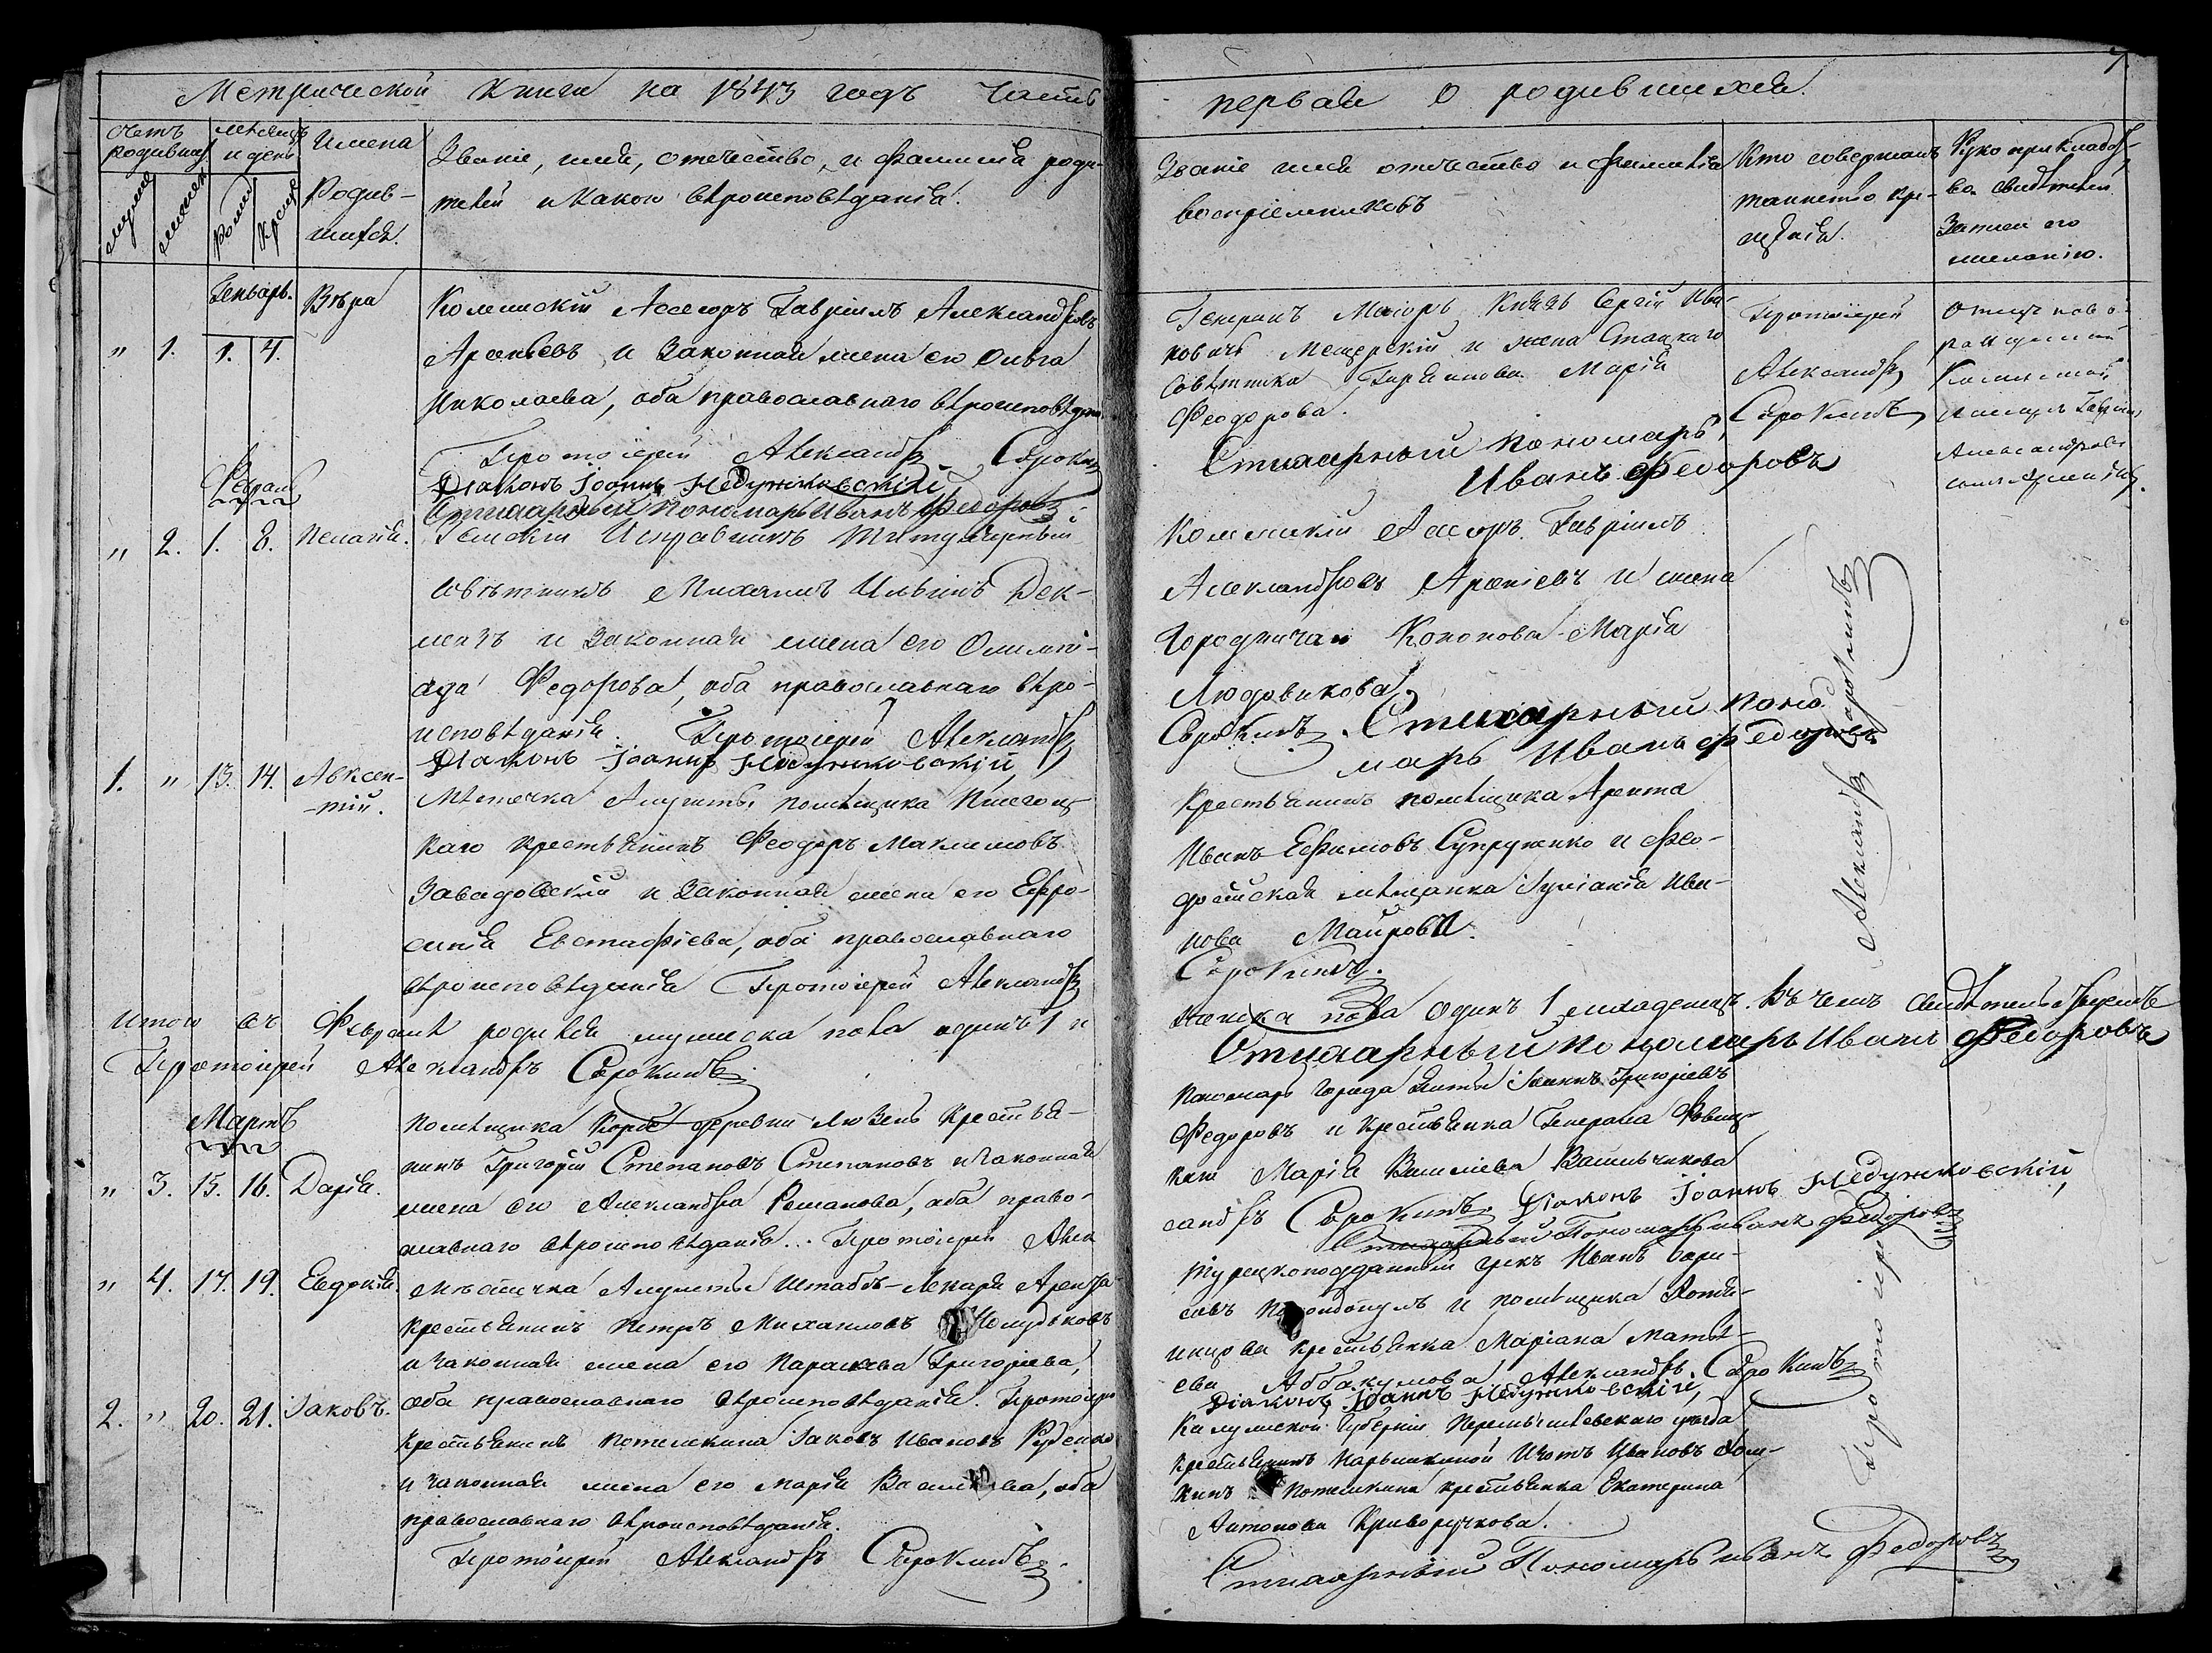 7
Метрической книги на 1843 годъ часть
первая о родившихся.
Счетъ родивших.
Мѣсяцъ и день
Имена Родив-
шихся.
Званіе, имя, отечество, и фамилія роди-
телей и какого вѣроисповѣданія.
Званіе имя отечество и фамилія
воспріемниковъ
Кто совершалъ
таинство кре-
щенія.
Рукоприкладст-
во свидѣтелей
записи по
желанію.
Генварь.
" 1. 1. 4. Вѣра
Колежскій Ассесоръ Гавріилъ Александровъ
Арсеньевъ и законная жена его Ольга
Николаева, оба православнаго вѣроисповѣдан.
Протоіерей Александръ Сорокинъ
Діаконъ Іоаннъ Недужковскій
Стихарный Пономарь Иванъ Федоровъ
Генералъ Маіоръ Князь Сергій Ива-
новичь Мещерскій и жена Стацкаго
Совѣтника Марія
Феодорова.
Стихарный пономарь
Иванъ Федоровъ
Протоіерей
Александръ
Сорокинъ
Отецъ ново-
рожденной
Колежскій
Ассесоръ Гавріилъ
Александровъ
сынъ Арсеньевъ.
Февраль
" 2. 1. 8. Пелагія.
Земскій Исправникъ Титулярный
совѣтникъ Михаилъ Ильинъ Дек-
и законная жена его Олимпі-
ада Федорова, оба православнаго вѣро-
исповѣданія. Протоіерей Александръ
Діаконъ Іоаннъ Недужковскій
Колежскій Ассесоръ Гавріилъ
Александровъ Арсеніевъ и жена
Городничаго Кононова Марія
Людовикова.
Сорокинъ. Стихарный поно-
марь Иванъ Федоровъ
1. " 13. 14. Авксен-
-тій.
Мѣстечка Алушты помѣщика
каго крестьянинъ Феодоръ Максимовъ
Завадовскій и законная жена его Ефро-
синія Евстафіева, оба православнаго
вѣроисповѣданія Протоіерей Александръ
Крестьянинъ помѣщика Арента
Иванъ Ефимовъ Супруненко и Фео-
досійская мѣщанка Іуліанія Ива-
нова Маирова.
Сорокинъ.
Итого въ Февралѣ родился мужеска пола одинъ 1 и
женска пола одинъ 1 младенецъ. Въ чемъ свидѣтельствуемъ
Протоіерей Александръ Сорокинъ
Стихарный пономарь Иванъ Федоровъ
Мартъ
" 3. 15. 16. Дарія.
Помѣщика деревни крестья-
нинъ Григорій Степановъ Степановъ и законная
жена его Александра Романова, оба право-
славнаго вѣроисповѣданія.. Протоіерей Алек
Пономарь города Ялты Іоаннъ Григоріевъ
Федоровъ и крестьянка Генерала
Марія Василіева Васильчикова
сандръ Сорокинъ. Діаконъ Іоаннъ Недужковскій,
Стихарный Пономарь Иванъ Федоровъ
" 4. 17. 19. Евдокія.
Мѣстечка Алушты Штабъ-Лекаря Аренда
крестьянинъ Петръ Михаиловъ
и законная жена его Параскева Григоріева,
оба православнаго вѣроисповѣданія. Протоіерей
Турецкоподданный грекъ Иванъ Бори-
совъ и помѣщика
крестьянка Маріана Матѳѣ-
ева Аббакумова Александръ Сорокинъ
Діаконъ Іоаннъ Недужковскій,
2. " 20. 21. Іаковъ.
Крестьянинъ Потемкина Іаковъ Ивановъ Руденко
и законная жена его Марія Василіева, оба
православнаго вѣроисповѣданія.
Протоіерей Александръ Сорокинъ
Калужской Губерніи Перемышлевскаго уѣзда
крестьянинъ Нарышкиной Изотъ Ивановъ
Потемкина крестьянка Екатерина
Антонова Криворучкова.
Стихарный Пономарь Иванъ Федоровъ
Протоіерей Александръ Сорокинъ